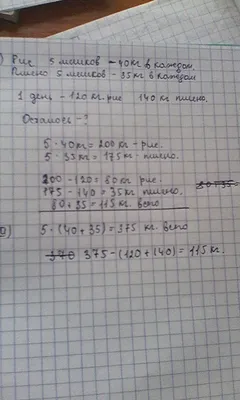 Рис 5 мешков - 40 кг в каждом.
Пшено 5 мешков - 35 кг в каждом
1 день - 120 кг. рис 140 кг пшено.
Осталось - ?
5 · 40 кг = 200 кг - рис.
5 · 35 кг = 175 кг - пшено.
200 - 120 = 80 кг рис.
175 - 140 = 35 кг пшено.
80 + 35 = 115 кг. всего
5 · (40 + 35) = 375 кг. всего
370 375 - (120 + 140) = 115 кг.